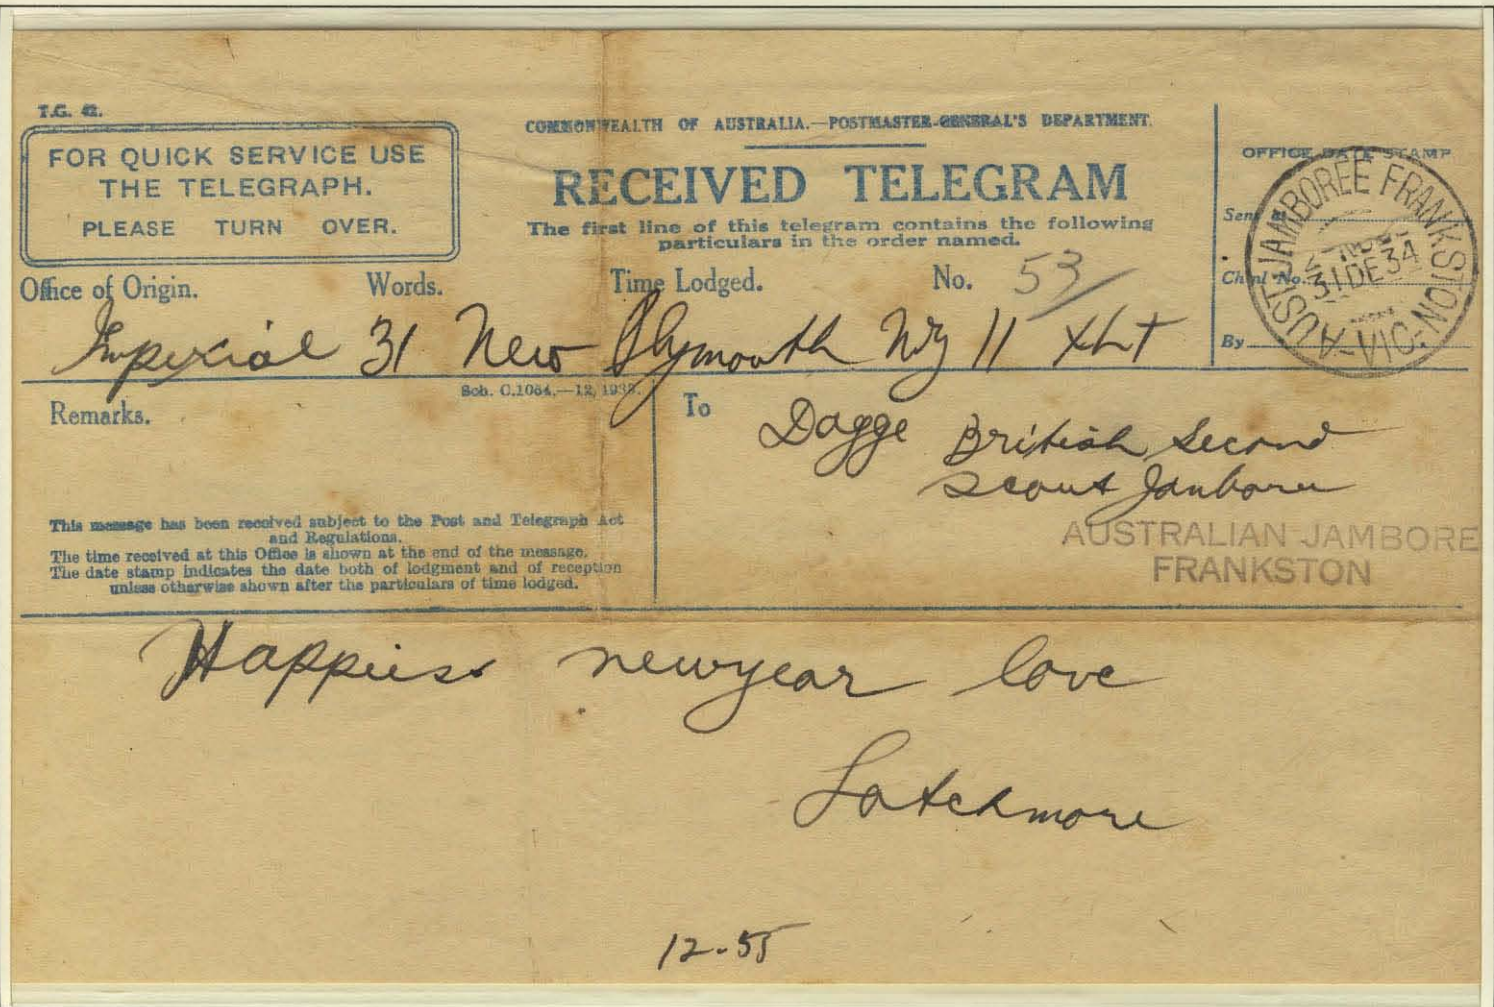 T.G. 42.
FOR QUICK SERVICE USE
THE TELEGRAPH.
PLEASE TURN OVER.
COMMONWEALTH OF AUSTRALIA.—POSTMASTER-GENERAL'S DEPARTMENT.
RECEIVED TELEGRAM
The first line of this telegram contains the following
particulars in the order named.
OFFICE DATE STAMP
Sent at
Ch'nl No.
By
AUST. JAMBOREE FRANKSTON-VIC-A
31DE34
Office of Origin. Words. Time Lodged. No. 53/
Imperial 31 New Plymouth NZ 11 XLT
Sch. C.1084.—12, 193
Remarks.
To Dagge British Second
Scout Jamboree
This message has been received subject to the Post and Telegraph Act
and Regulations.
The time received at this Office is shown at the end of the message.
The date stamp indicates the date both of lodgment and of reception
unless otherwise shown after the particulars of time lodged.
AUSTRALIAN JAMBORE
FRANKSTON
Happiest newyear love
Latchmore
12-55